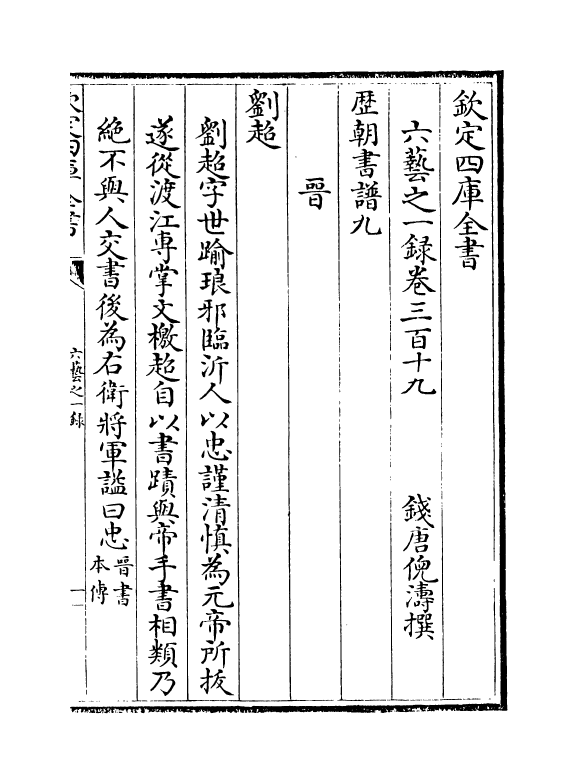 欽定四庫全書
六藝之一録卷三百十九
錢唐倪濤撰
歴朝書譜九
晉
劉超
劉超字世踰琅邪臨沂人以忠謹清慎為元帝所拔
遂從渡江專掌文檄超自以書蹟與帝手書相類乃
絶不與人交書後為右衛將軍謚曰忠晉書本傳
欽定四庫全書
六藝之一録
一